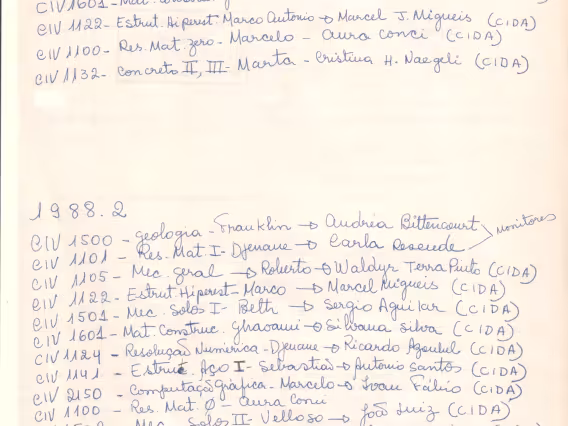 CIV 1601 -
CIV 1122 - Estrut. Hiperest Marco Antonio → Marcel J. Migueis (CIDA)
CIV 1100 - Res. Mat. zero - Marcelo - Aura Conci (CIDA)
CIV 1132 - Concreto II, III - Marta - Cristina H. Naegeli (CIDA)
1988.2
CIV 1500 - Geologia - Franklin → Andréa Bittencourt
monitores
CIV 1101 - Res. Mat. I - Djenane → Carla Resende
CIV 1105 - Mec. Geral → Roberto → Waldyr Terra Pinto (CIDA)
CIV 1122 - Estrut. Hiperest - Marco → Marcel Migueis (CIDA)
CIV 1501 - Mec. Solos I - Beth → Sergio Aguilar (CIDA)
CIV 1601 - Mat. Construc. Ghavami → Silvana Silva (CIDA)
CIV 1124 - Resolução Numérica - Djenane → Ricardo (CIDA)
CIV 1141 - Estrut. Aço I - Sebastião → Antonio Santos (CIDA)
CIV 2150 - Computação Gráfica - Marcelo → Ivan Fábio (CIDA)
CIV 1100 - Res. Mat. Ø - Aura Conci
Mec. Solos II - Velloso → João Luiz (CIDA)